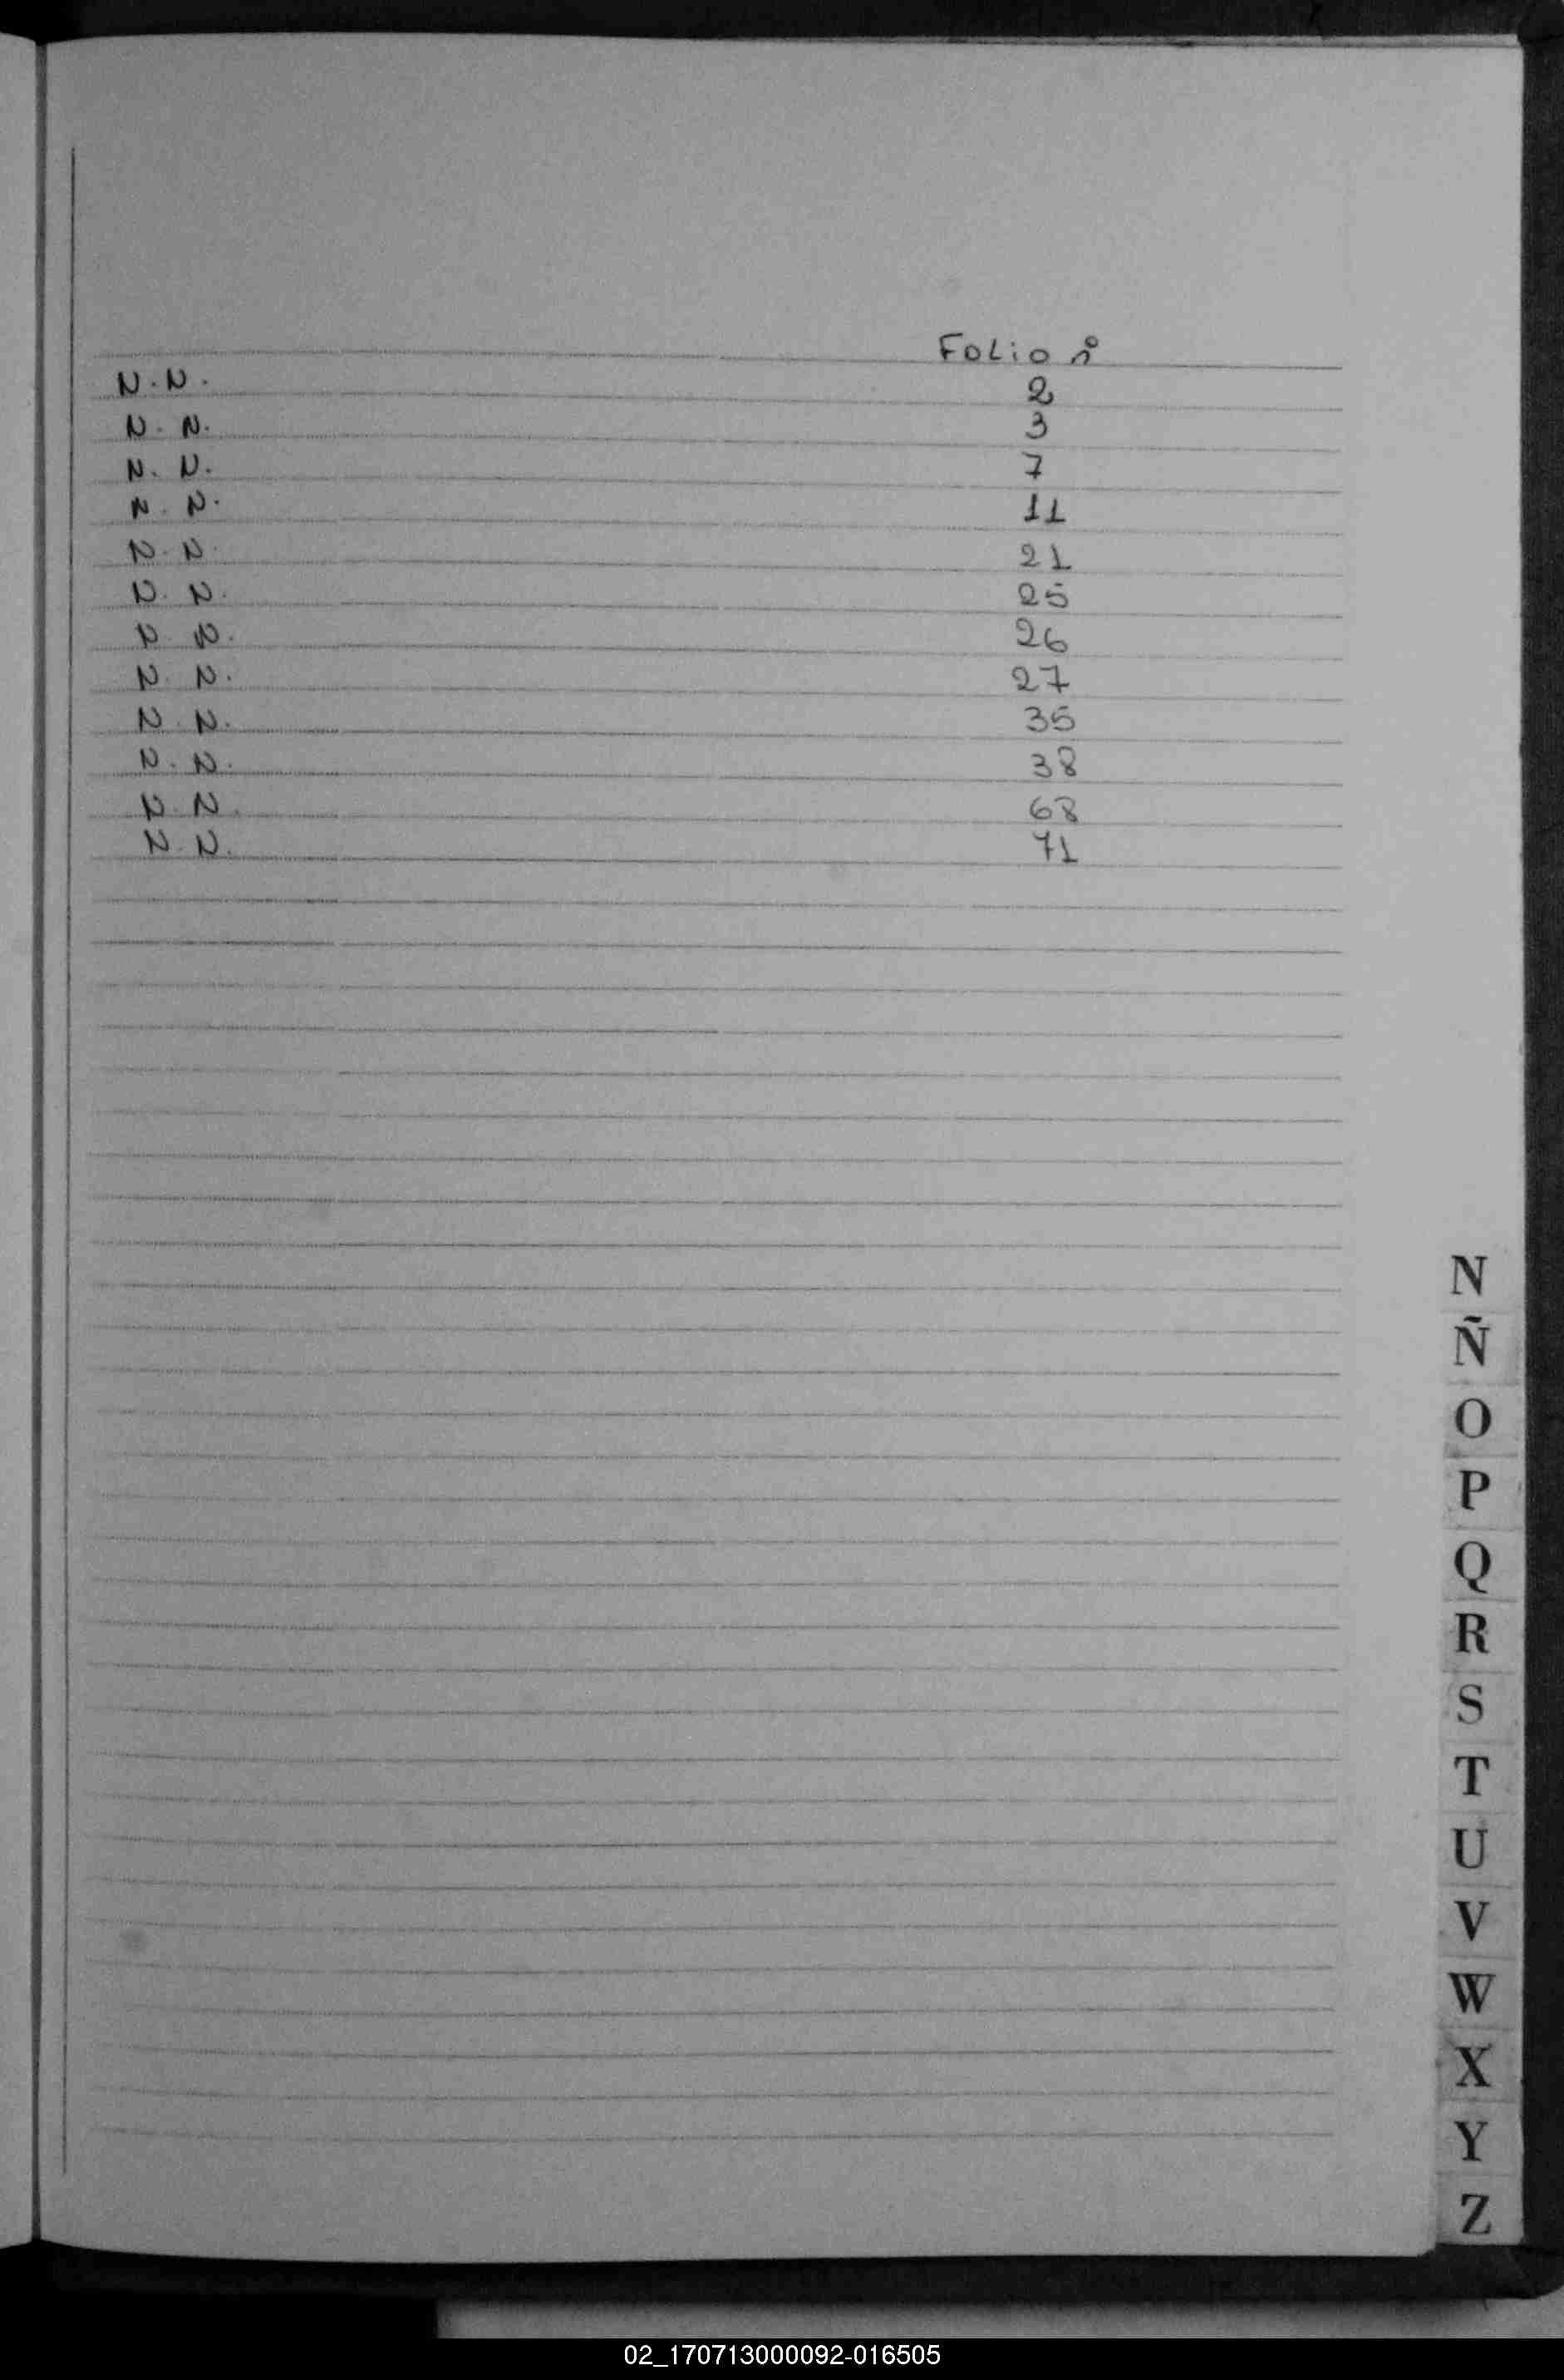 Folio n°
N. N. 2
N. N. 3
N. N. 7
N. N. 11
N. N. 21
N. N. 25
N. N. 26
N. N. 27
N. N. 35
N. N. 38
N. N. 68
N. N. 71
N
Ñ
O
P
Q
R
S
T
U
V
W
X
Y
Z
02_170713000092-016505